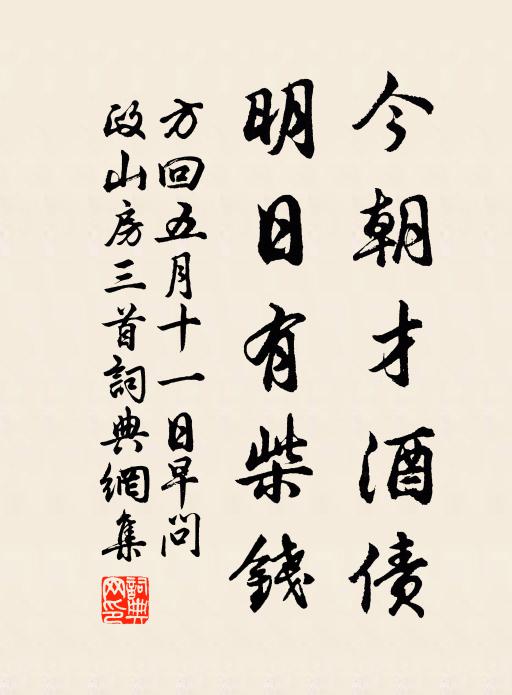 今朝才酒債
明日有柴錢
方回五月十一日早問
政山房三首詞典網集
詞典網印